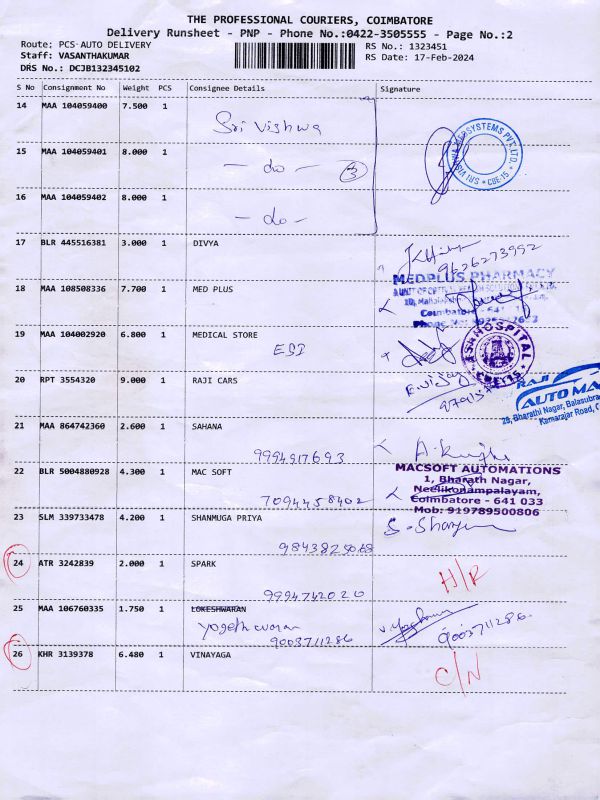 THE PROFESSIONAL COURIERS, COIMBATORE
Delivery Runsheet - PNP - Phone No.:0422-3505555 - Page No.:2
Route: PCS-AUTO DELIVERY
RS No.: 1323451
Staff: VASANTHAKUMAR
RS Date: 17-Feb-2024
DRS No.: DCJB132345102
S No Consignment No Weight PCS Consignee Details Signature
14 MAA 104059400 7.500 1
Sri Vishwa
15 MAA 104059401 8.000 1
- do - 3
SYSTEMS PVT.LTD.
CBE-15
16 MAA 104059402 8.000 1
- do -
17 BLR 445516381 3.000 1 DIVYA
9626273992
18 MAA 108508336 7.700 1 MED PLUS
MEDPLUS PHARMACY
Coimbatore - 641
Phone
19 MAA 104002920 6.800 1 MEDICAL STORE
ESI
HOSPITAL
20 RPT 3554320 9.000 1 RAJI CARS
RAJI
AUTO MA
28, Bharathi Nagar, Balasubra
Kamarajar Road, C
21 MAA 864742360 2.600 1 SAHANA
9994917693
22 BLR 5004880928 4.300 1 MAC SOFT
7094458402
MACSOFT AUTOMATIONS
1, Bharath Nagar,
Neelikonampalayam,
Coimbatore - 641 033
Mob: 919789500806
23 SLM 339733478 4.200 1 SHANMUGA PRIYA
24 ATR 3242839 2.000 1 SPARK
9994742020
H/R
25 MAA 106760335 1.750 1 LOKESHWARAN
Yogeshwaran
9003711286
9003711286.
26 KHR 3139378 6.480 1 VINAYAGA
C/N